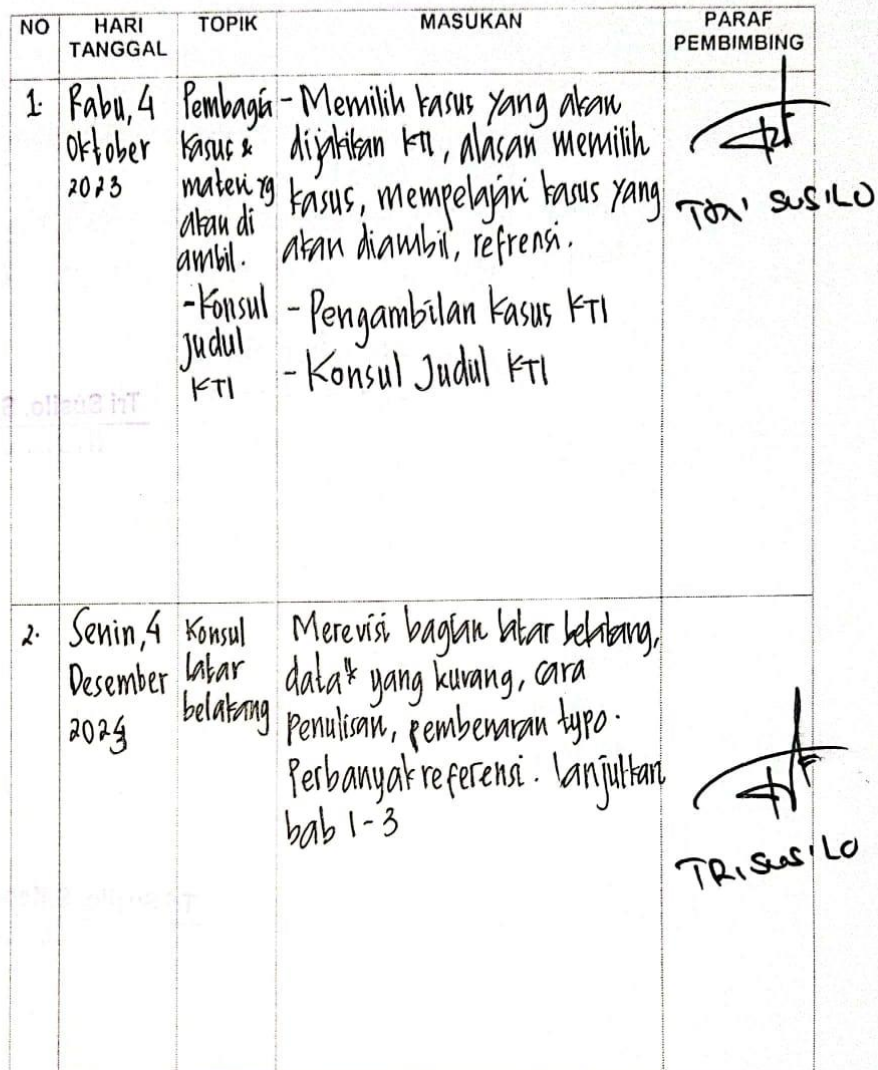 NO HARI TANGGAL TOPIK MASUKAN PARAF PEMBIMBING
1. Rabu, 4 Oktober 2023
Pembagia kasus & materi yg akan di ambil.
-Konsul Judul KTI
- Memilih kasus yang akan
dijadikan KTI, alasan memilih
kasus, mempelajari kasus yang
akan diambil, refrensi.
- Pengambilan kasus KTI
- Konsul Judul KTI
TRI SUSILO
2. Senin, 4 Desember
Konsul latar belakang
Merevisi bagian latar belakang,
data" yang kurang, cara
penulisan, pembenaran typo.
Perbanyak referensi. lanjutkan
bab 1-3
TRI SUSILO
Tri Susilo, S